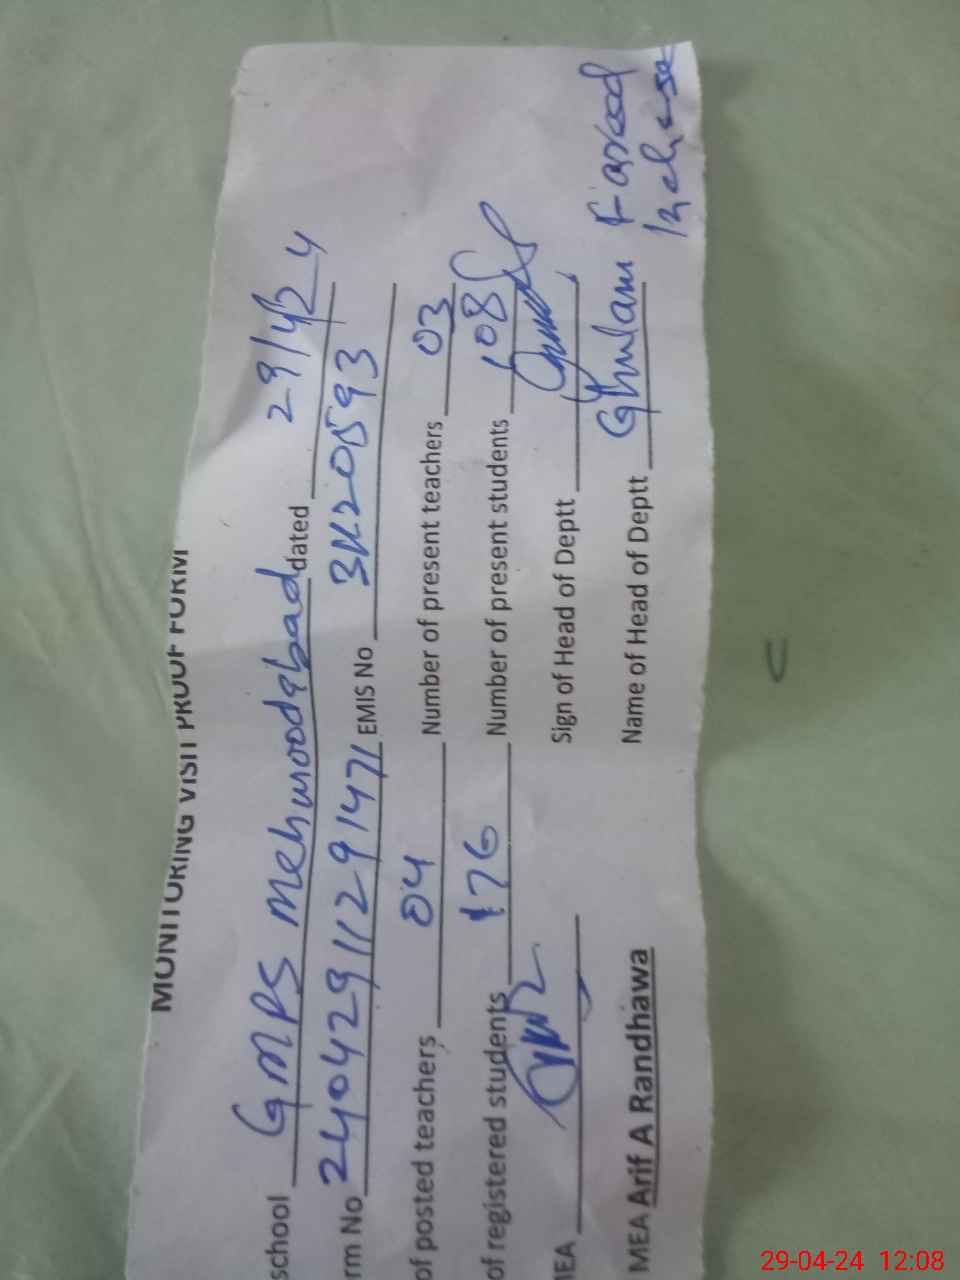 MONITORING VISIT PROOF FORM
school GMPS Mehmoodabad dated 29/4/24
rm No 24042911291471 EMIS No 31220593
of posted teachers 04 Number of present teachers 03
of registered students 176 Number of present students 108
IEA Sign of Head of Deptt
MEA Arif A Randhawa Name of Head of Deptt Ghulam Fareed
29-04-24 12:08